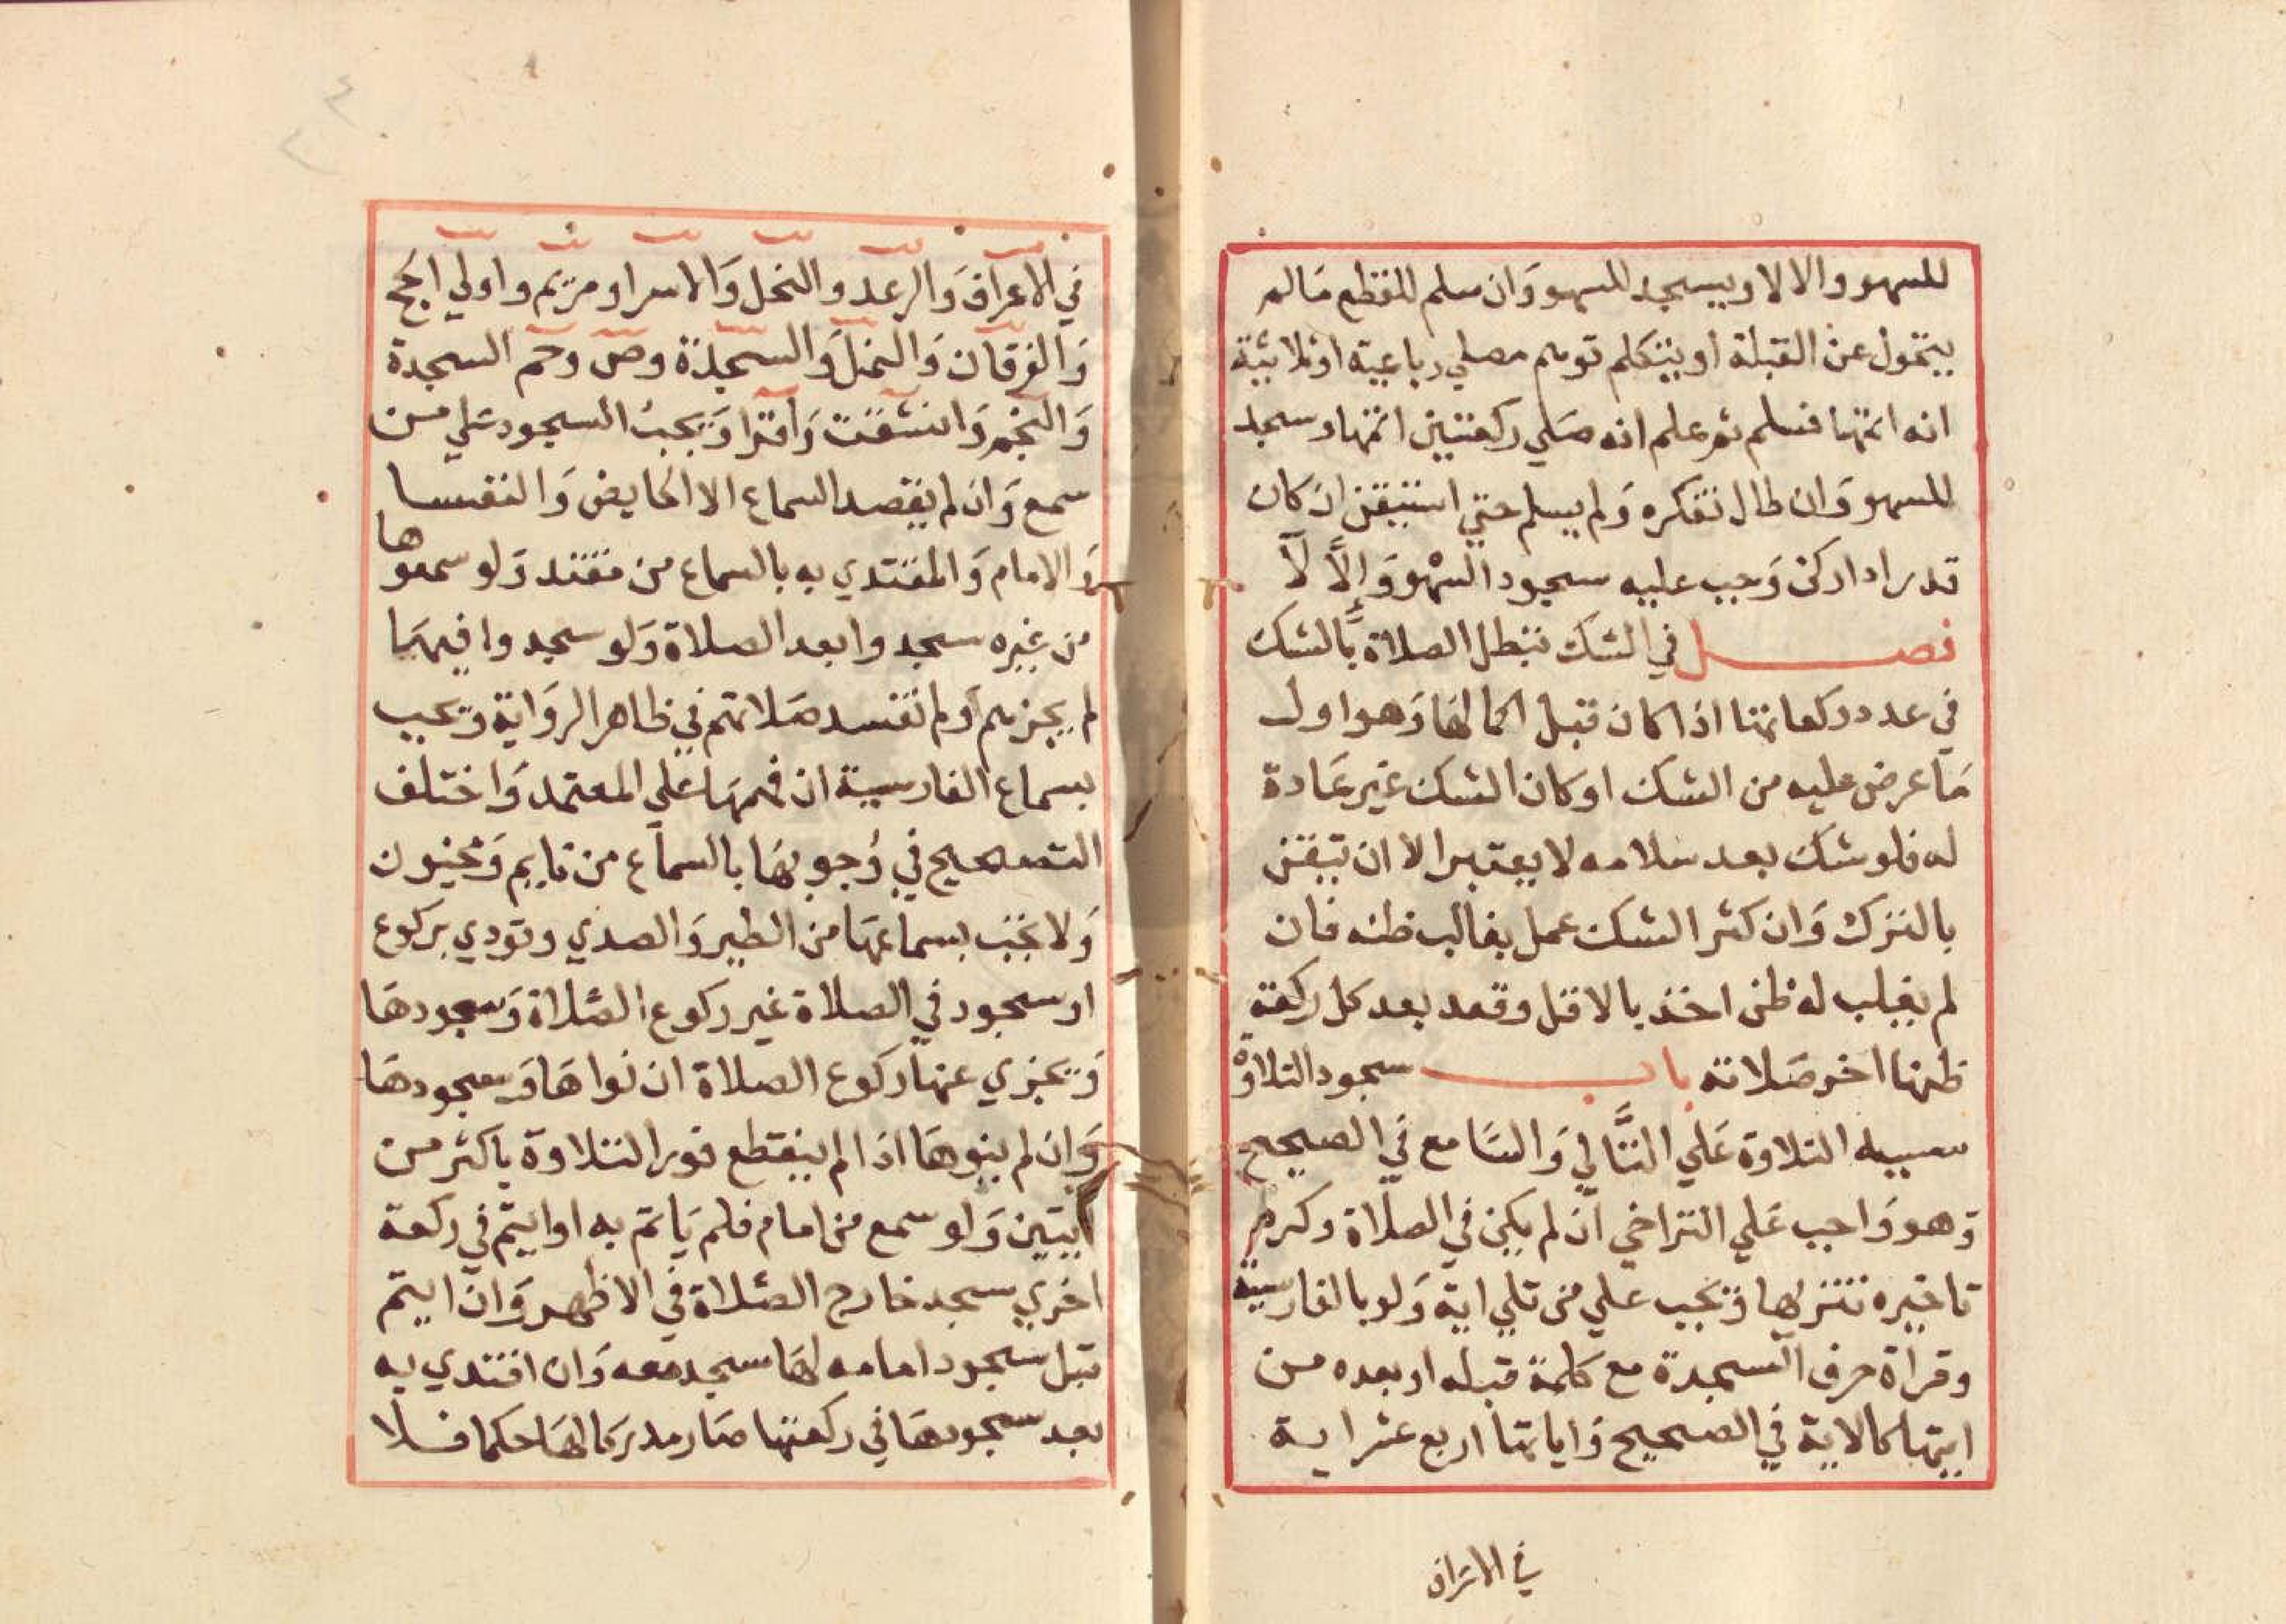 للسهو والا لا ويسجد للسهو وان سلم للقطع مالم
يتحول عن القبلة او يتكلم توهم مصلي رباعية او ثلاثية
انه اتمها فسلم ثم علم انه صلي ركعتين اتمها وسجد
للسهو وان طال تفكره ولم يسلم حتي استيقن ان كان
قدر اداركن وجب عليه سجود السهو وإلا لا
فصل في الشك تبطل الصلاة بالشك
في عدد ركعاتها اذا كان قبل اكمالها وهو اول
ما عرض عليه من الشك او كان الشك غير عادة
له فلو شك بعد سلامه لا يعتبر الا ان تيقن
بالترك وان كثر الشك عمل بغالب ظنه فان
لم يغلب له ظن اخذ بالاقل وقعد بعد كل ركعة
ظنها اخر صلاته باب سجود التلاوة
سببه التلاوة علي التالي والسامع في الصحيح
وهو واجب علي التراخي ان لم يكن في الصلاة وكره
تاخيره تنزيها ويجب علي من تلي اية ولو بالفارسية
وقراة حرف السجدة مع كلمة قبله او بعده من
ايتها كالاية في الصحيح واياتها اربع عشر اية
في الاعراف
في الاعراف والرعد والنحل والاسرا ومريم واولي الحج
والفرقان والنمل والسجدة وص وحم السجدة
والنجم وانشقت واقرا ويجب السجود علي من
سمع وان لم يقصد السماع الا الحايض والنفسا
والامام والمقتدي به بالسماع من مقتد ولو سمعوها
من غيره سجدوا بعد الصلاة ولو سجدوا فيها
لم يجزهم ولم تفسد صلاتهم في ظاهر الرواية ويجب
بسماع الفارسية ان فهمها علي المعتمد واختلف
التصحيح في وجوبها بالسماع من نايم ومجنون
ولا تجب بسماعها من الطير والصدي وتودي بركوع
او سجود في الصلاة غير ركوع الصلاة وسجودها
ويجزي عنها ركوع الصلاة ان نواها وسجودها
وان لم ينوها اذا لم ينقطع فور التلاوة باكثر من
ايتين ولو سمع من امام فلم ياتم به او ايتم في ركعة
اخري سجد خارج الصلاة في الاظهر وان ايتم
قبل سجود امامه لها سجد معه وان اقتدي به
بعد سجودها في ركعتها صار مدركا لها حكما فلا